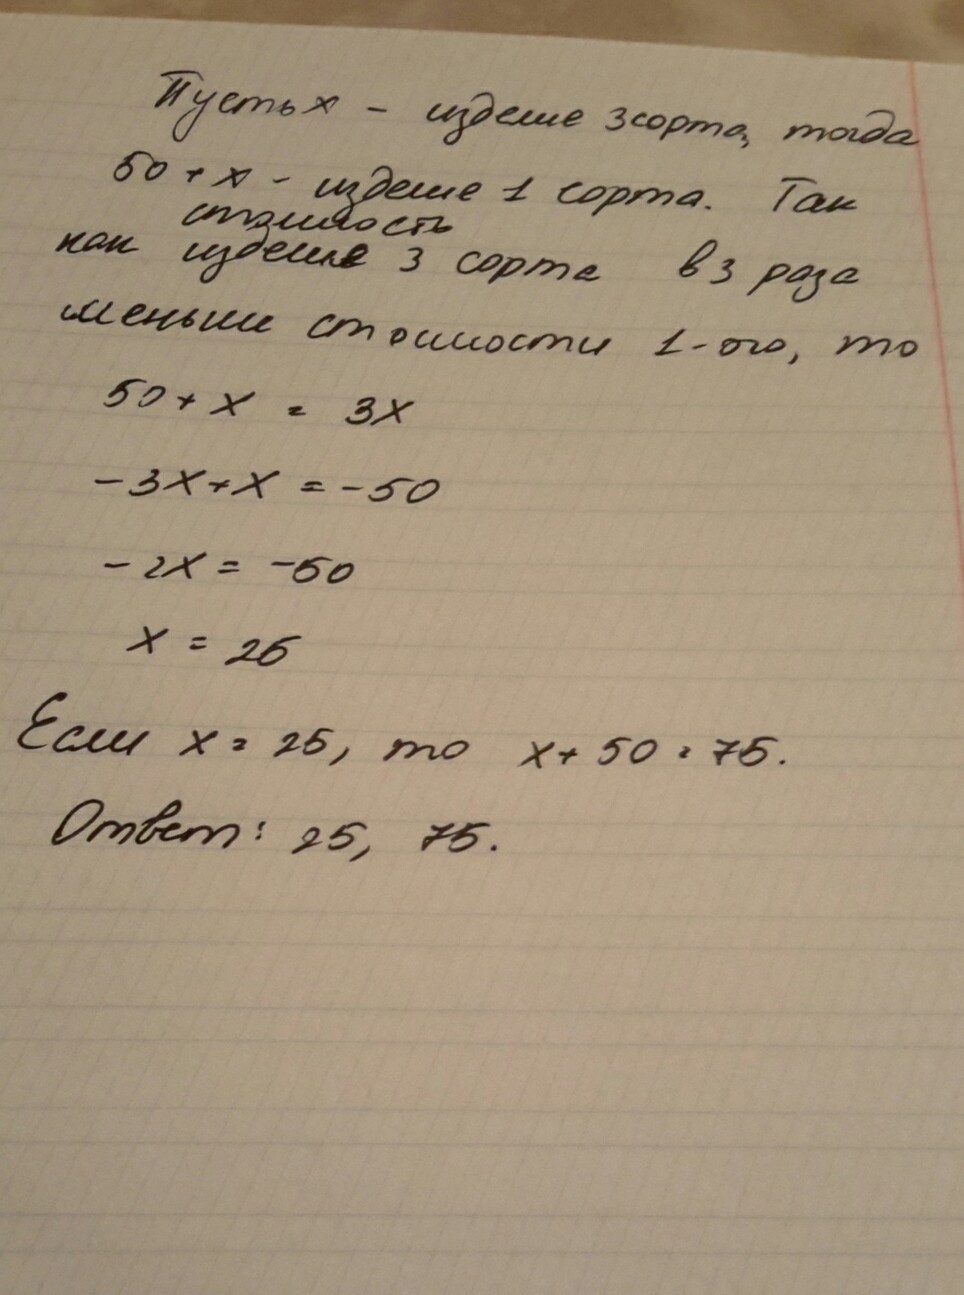 Пусть x - изделие 3 сорта, тогда
50 + x - изделие 1 сорта. Так
стоимость
как изделие 3 сорта в 3 раза
меньше стоимости 1-ого, то
50 + x = 3x
-3x + x = -50
-2x = -50
x = 25
Если x = 25, то x + 50 = 75.
Ответ: 25, 75.